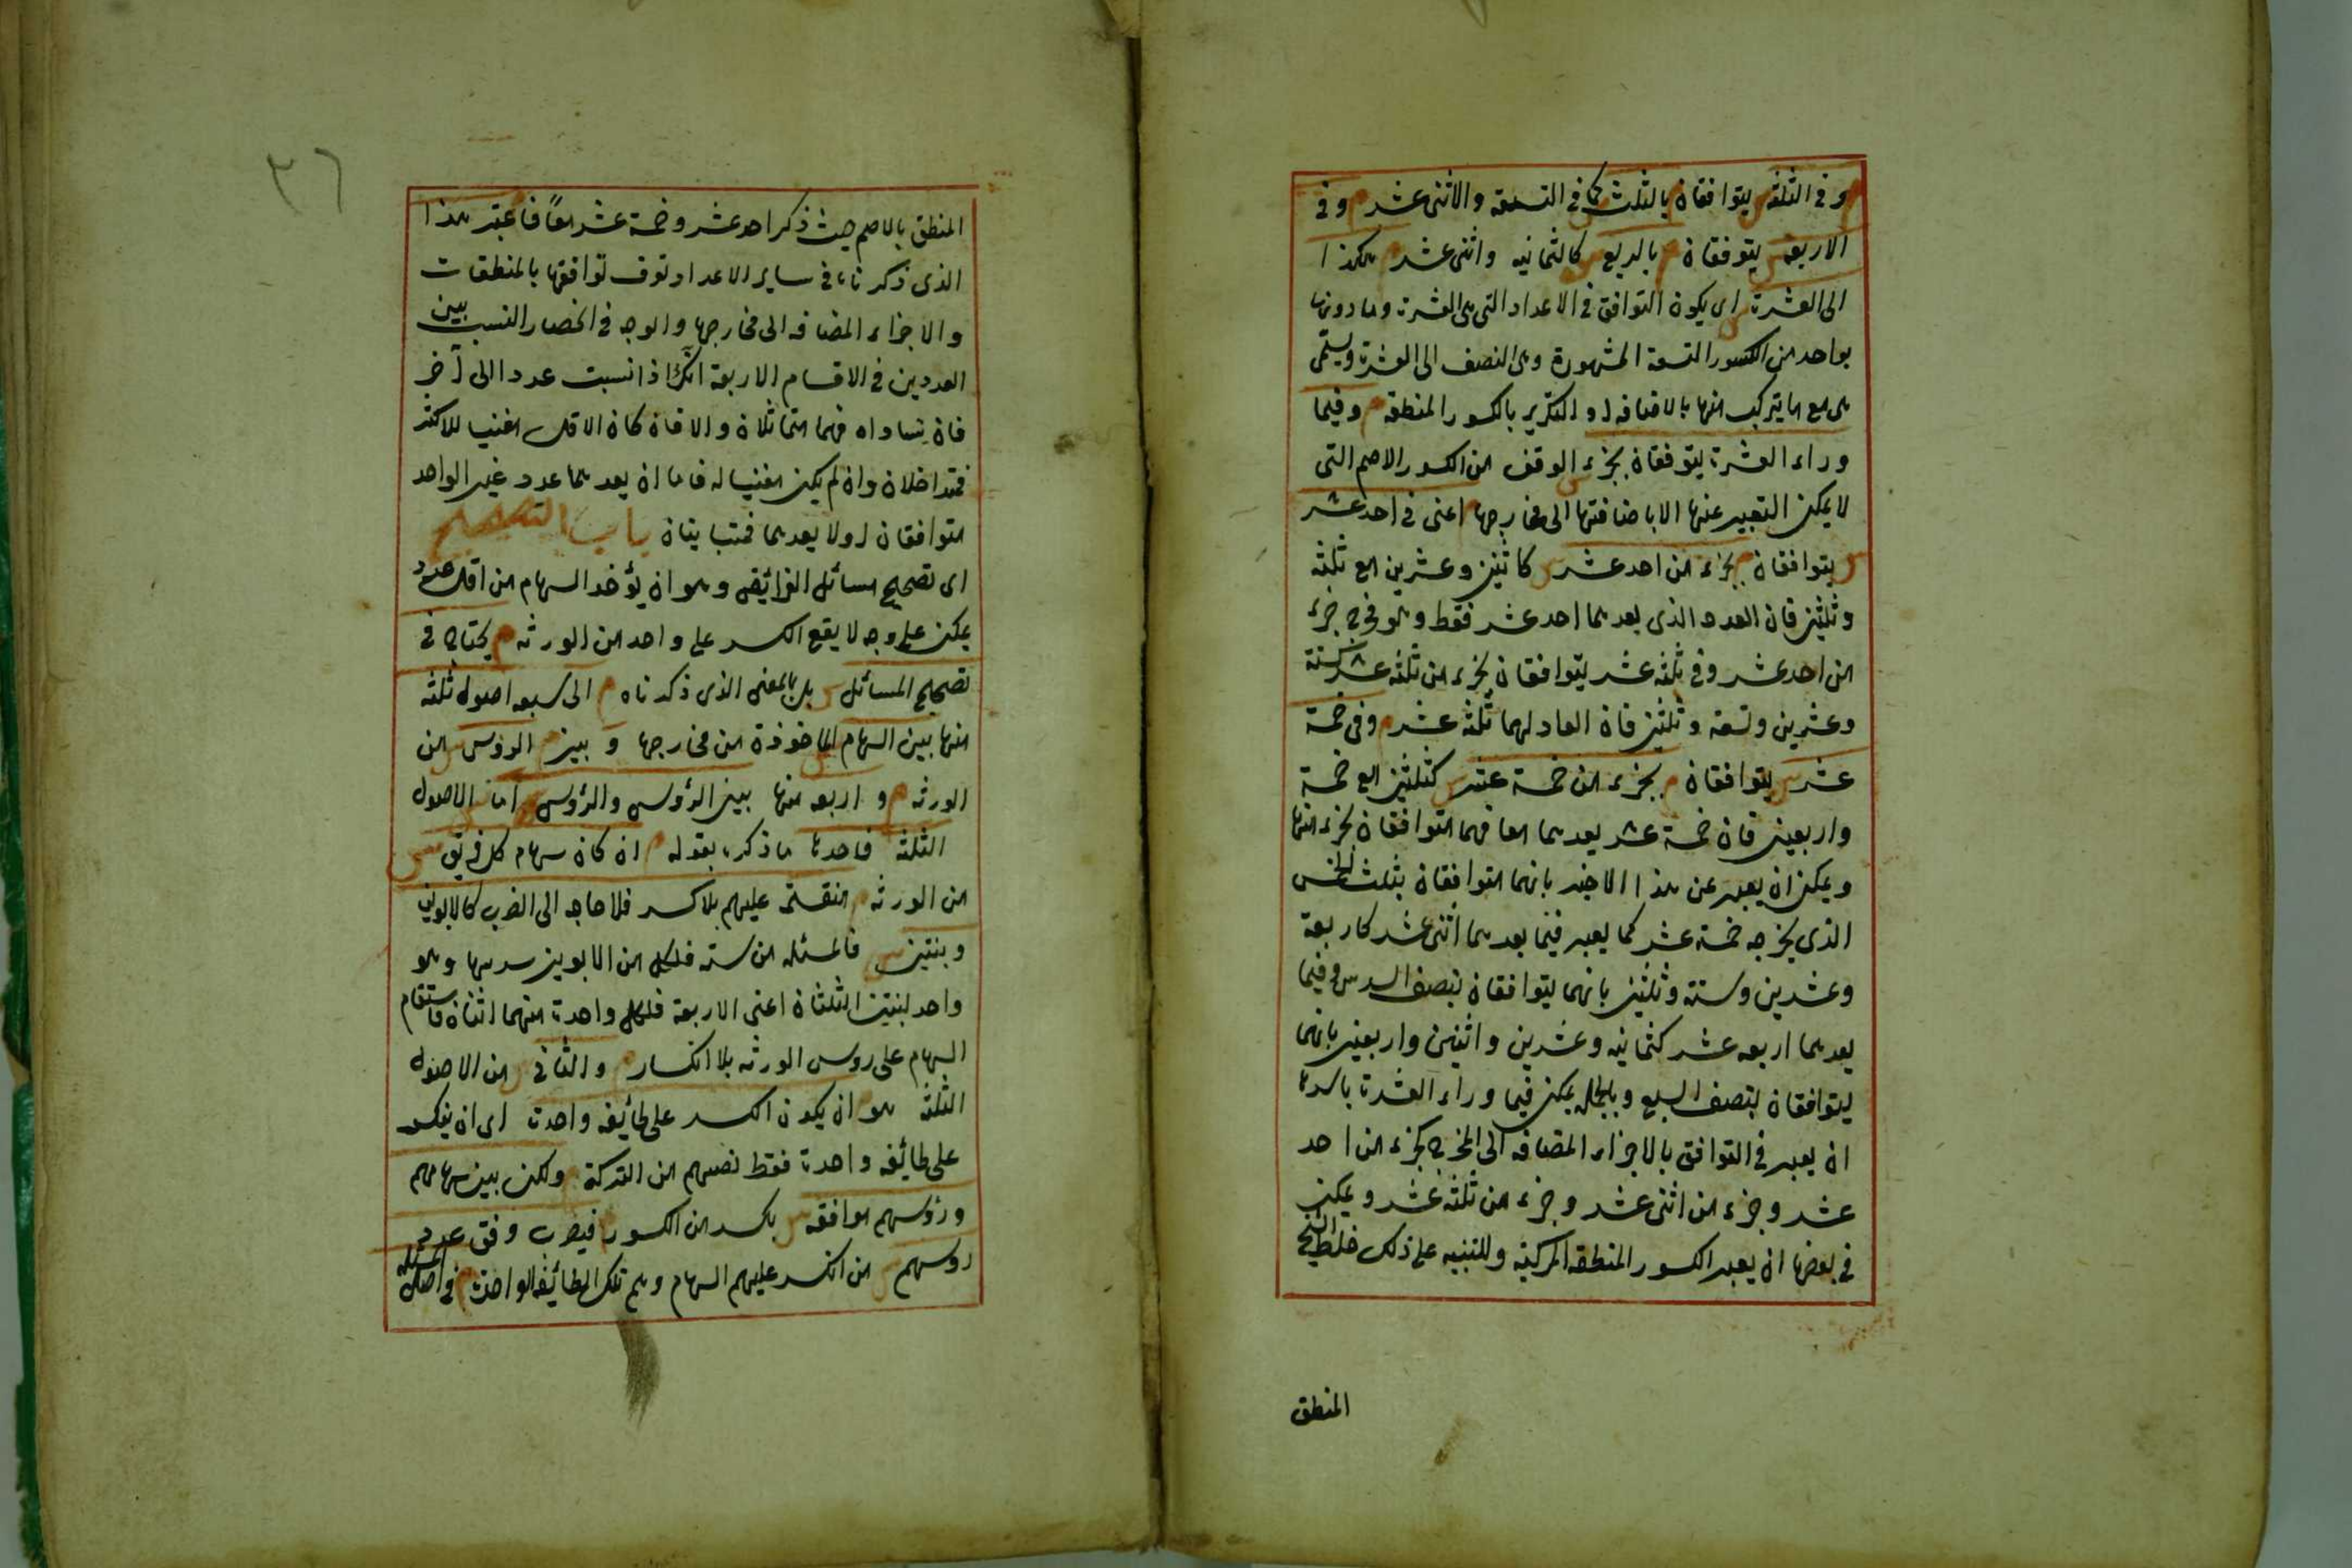 م وفى الثلثة س يتوافقان م بالثلث س كما فى التسعة والاثنى عشر م وفى
الاربعة س يتوفقان م بالربع س كالثمانيه واثنى عشر م هكذا
الى العشرة س اى يكون التوافق فى الاعداد التى هى العشرة وما دونها
بواحد من الكسور التسعة المشهورة وهى النصف الى العشر وتسمى
هى مع ما يتركب منها بالاضافه او التكرير بالكسور المنطقه م وفيما
وراء العشرة يتوفقان بجزء الوفق من الكسور الاصم التى
لا يمكن التعبير عنها الا باضافتها الى مخارجها م اعنى فى احد عشر
س يتوافقان م بجزء من احد عشر س كاثنين وعشرين مع ثلثة
وثلثين فان العدد الذى يعدهما احد عشر فقط وهو مخرج جزء
من احد عشر وفى ثلثه عشر يتوافقان بجزء من ثلثه عشر كستة
وعشرين وتسعة وثلثين فان العاد لهما ثلثه عشر م وفى خمسة
عشر س يتوافقان م بجزء من خمسة عشر س كثلثين مع خمسة
واربعين فان خمسة عشر يعدهما معا فهما متوافقان بجزء منها
ويمكن ان يعبر عن هذا الاخير بانهما متوافقان بثلث الخمس
الذى مخرجه خمسة عشر كما يعبر فيما يعدهما اثنى عشر كاربعة
وعشرين وستة وثلثين بانهما يتوافقان بنصف السدس وفيما
يعدهما اربعه عشر كثمانيه وعشرين واثنين واربعين بانهما
يتوافقان بنصف السبع وبالجمله يمكن فيما وراء العشرة باسرها
ان يعبر فى التوافق بالاجزاء المضافه الى المخرج كجزء من احد
عشر وجزء من اثنى عشر وجزء من ثلثه عشر ويمكن
فى بعضها ان يعبر الكسور المنطقه المركبة وللتنبيه على ذلك خلط الشيخ
المنطق
٣٦
المنطق بالاصم حيث ذكر احد عشر وخمسة عشر معًا فاعتبر هذا
الذى ذكرناه فى ساير الاعداد توف توافقها بالمنطقات
والاجزاء المضافه الى مخارجها والوجه فى انحصار النسب بين
العددين فى الاقسام الاربعة انك اذا نسبت عددا الى آخر
فان تساواه فهما متماثلان والا فان كان الاقل مفنيا للاكثر
فمتداخلان وان لم يكن مفنيا له فاما ان يعدهما عدد غير الواحد
متوافقان او لا يعدهما فمتباينان باب التصحيح
اى تصحيح مسائل الفرائض وهو ان يؤخذ السهام من اقل عدد
يمكن على وجه لا يقع الكسر على واحد من الورثه م يحتاج فى
تصحيح المسائل س بل بالمعنى الذى ذكرناه م الى سبعه اصول ثلثه
منها بين السهام س الماخوذة من مخارجها و بين م الرؤس س من
الورثه م و اربعه منها بين الرؤس والرؤس اما س الاصول
الثلثة فاحدها ما ذكره بقوله م ان كان سهام كل فريق س
من الورثه م منقسمة عليهم بلا كسر فلا حاجه الى الضرب كالابوين
وبنتين س فالمسئله من سته فلكل من الابوين سدسها وهو
واحد لبنتين الثلثان اعنى الاربعة فلكل واحدة منهما اثنان فاستقام
السهام على روس الورثه بلا انكسار م والثانى س من الاصول
الثلثة هو م ان يكون الكسر على طائفه واحدة اى ان ينكسر
على طائفه واحدة فقط نصيبهم من التركة م ولكن بين سهامهم
ورؤسهم موافقه س بكسر من الكسور م فيضرب وفق عدد
روسهم س من انكسر عليهم السهام وهم تلك الطائفه الواحدة م فى اصل المسئله